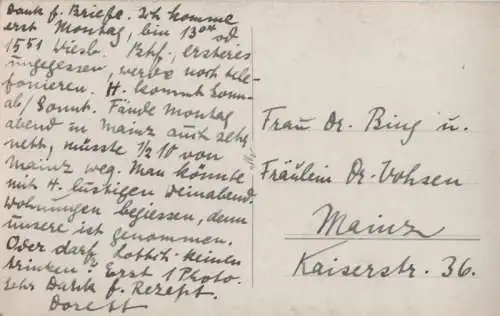 Dank f. Briefe. Ich komme
erst Montag, bin 13 04 od
15 51 Wiesb. Bhf., ersteres
ungegessen, werde noch tele-
fonieren. H. kommt Sonn-
ab/Sonnt. Fände Montag
abend in Mainz auch sehr
nett, müsste 1/2 10 von
Mainz weg. Man könnte
mit H. lustigen Weinabend.
Wohnungen begiessen, denn
unsere ist genommen.
Oder darf keinen
trinken? Erst 1 Photo.
Sehr Dank f. Rezept.
Frau Dr. Bing u.
Fräulein Dr. Vohsen
Mainz
Kaiserstr. 36.